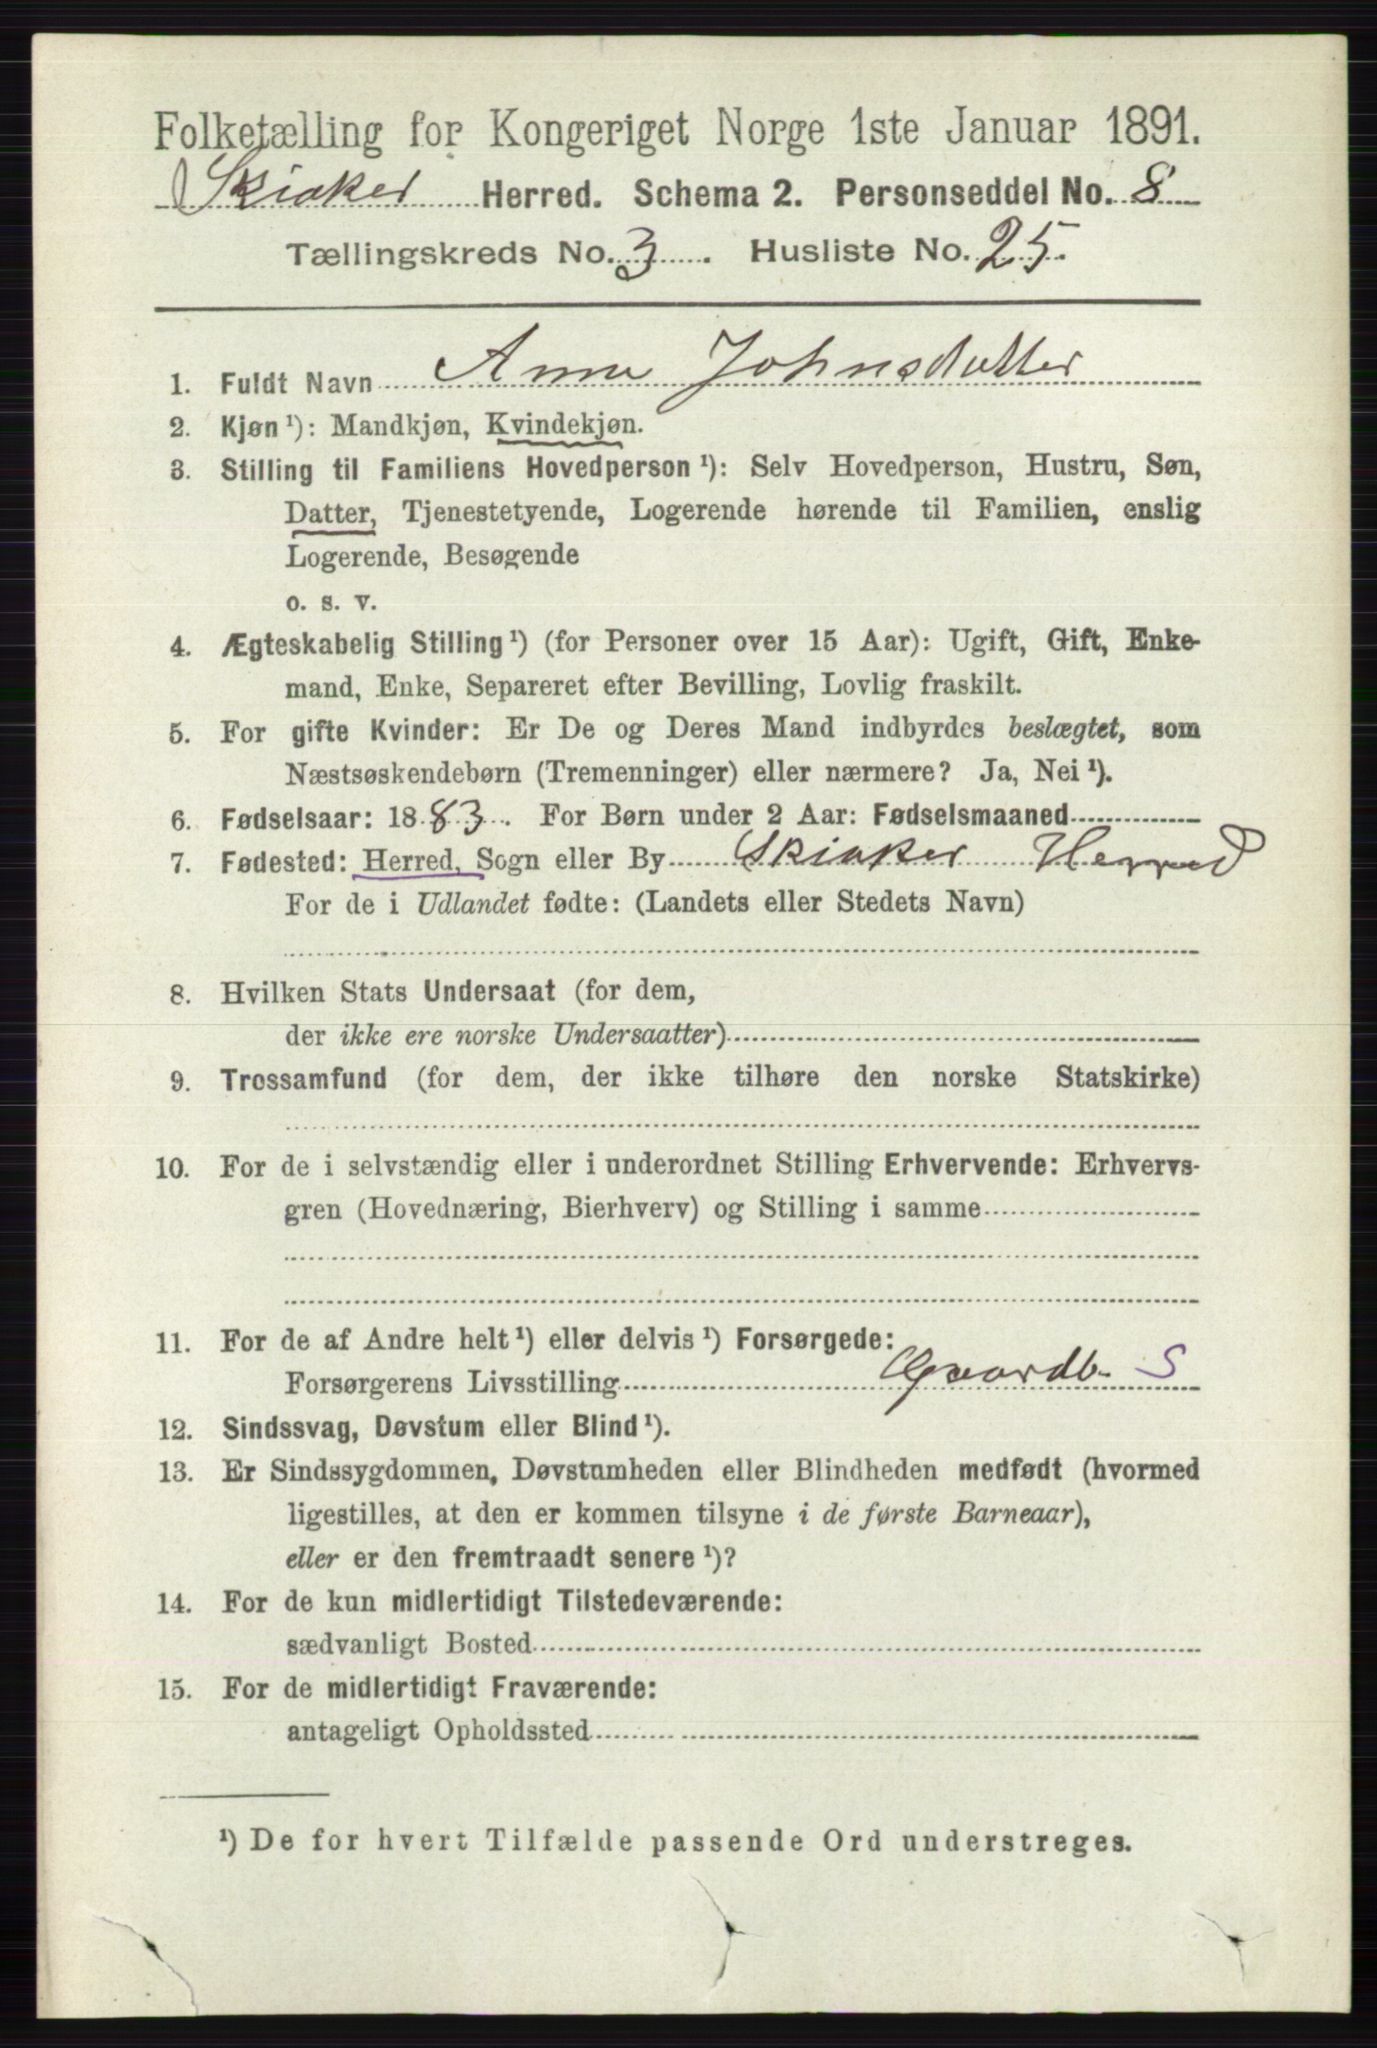 Folketælling for Kongeriget Norge 1ste Januar 1891.
Skiaker Herred. Schema 2. Personseddel No. 8
Tællingskreds No. 3. Husliste No. 25.
1. Fuldt Navn Anne Johnsdatter
2. Kjøn ¹): Mandkjøn, Kvindekjøn.
3. Stilling til Familiens Hovedperson ¹): Selv Hovedperson, Hustru, Søn,
Datter, Tjenestetyende, Logerende hørende til Familien, enslig
Logerende, Besøgende
o. s. v.
4. Ægteskabelig Stilling ¹) (for Personer over 15 Aar): Ugift, Gift, Enke-
mand, Enke, Separeret efter Bevilling, Lovlig fraskilt.
5. For gifte Kvinder: Er De og Deres Mand indbyrdes beslægtet, som
Næstsøskendebørn (Tremenninger) eller nærmere? Ja, Nei ¹).
6. Fødselsaar: 1883. For Børn under 2 Aar: Fødselsmaaned
7. Fødested: Herred, Sogn eller By Skiaker Herred
For de i Udlandet fødte: (Landets eller Stedets Navn)
8. Hvilken Stats Undersaat (for dem,
der ikke ere norske Undersaatter)
9. Trossamfund (for dem, der ikke tilhøre den norske Statskirke)
10. For de i selvstændig eller i underordnet Stilling Erhvervende: Erhvervs-
gren (Hovednæring, Bierhverv) og Stilling i samme
11. For de af Andre helt ¹) eller delvis ¹) Forsørgede:
Forsørgerens Livsstilling Gaardb. S
12. Sindssvag, Døvstum eller Blind ¹).
13. Er Sindssygdommen, Døvstumheden eller Blindheden medfødt (hvormed
ligestilles, at den er kommen tilsyne i de første Barneaar),
eller er den fremtraadt senere ¹)?
14. For de kun midlertidigt Tilstedeværende:
sædvanligt Bosted
15. For de midlertidigt Fraværende:
antageligt Opholdssted
¹) De for hvert Tilfælde passende Ord understreges.